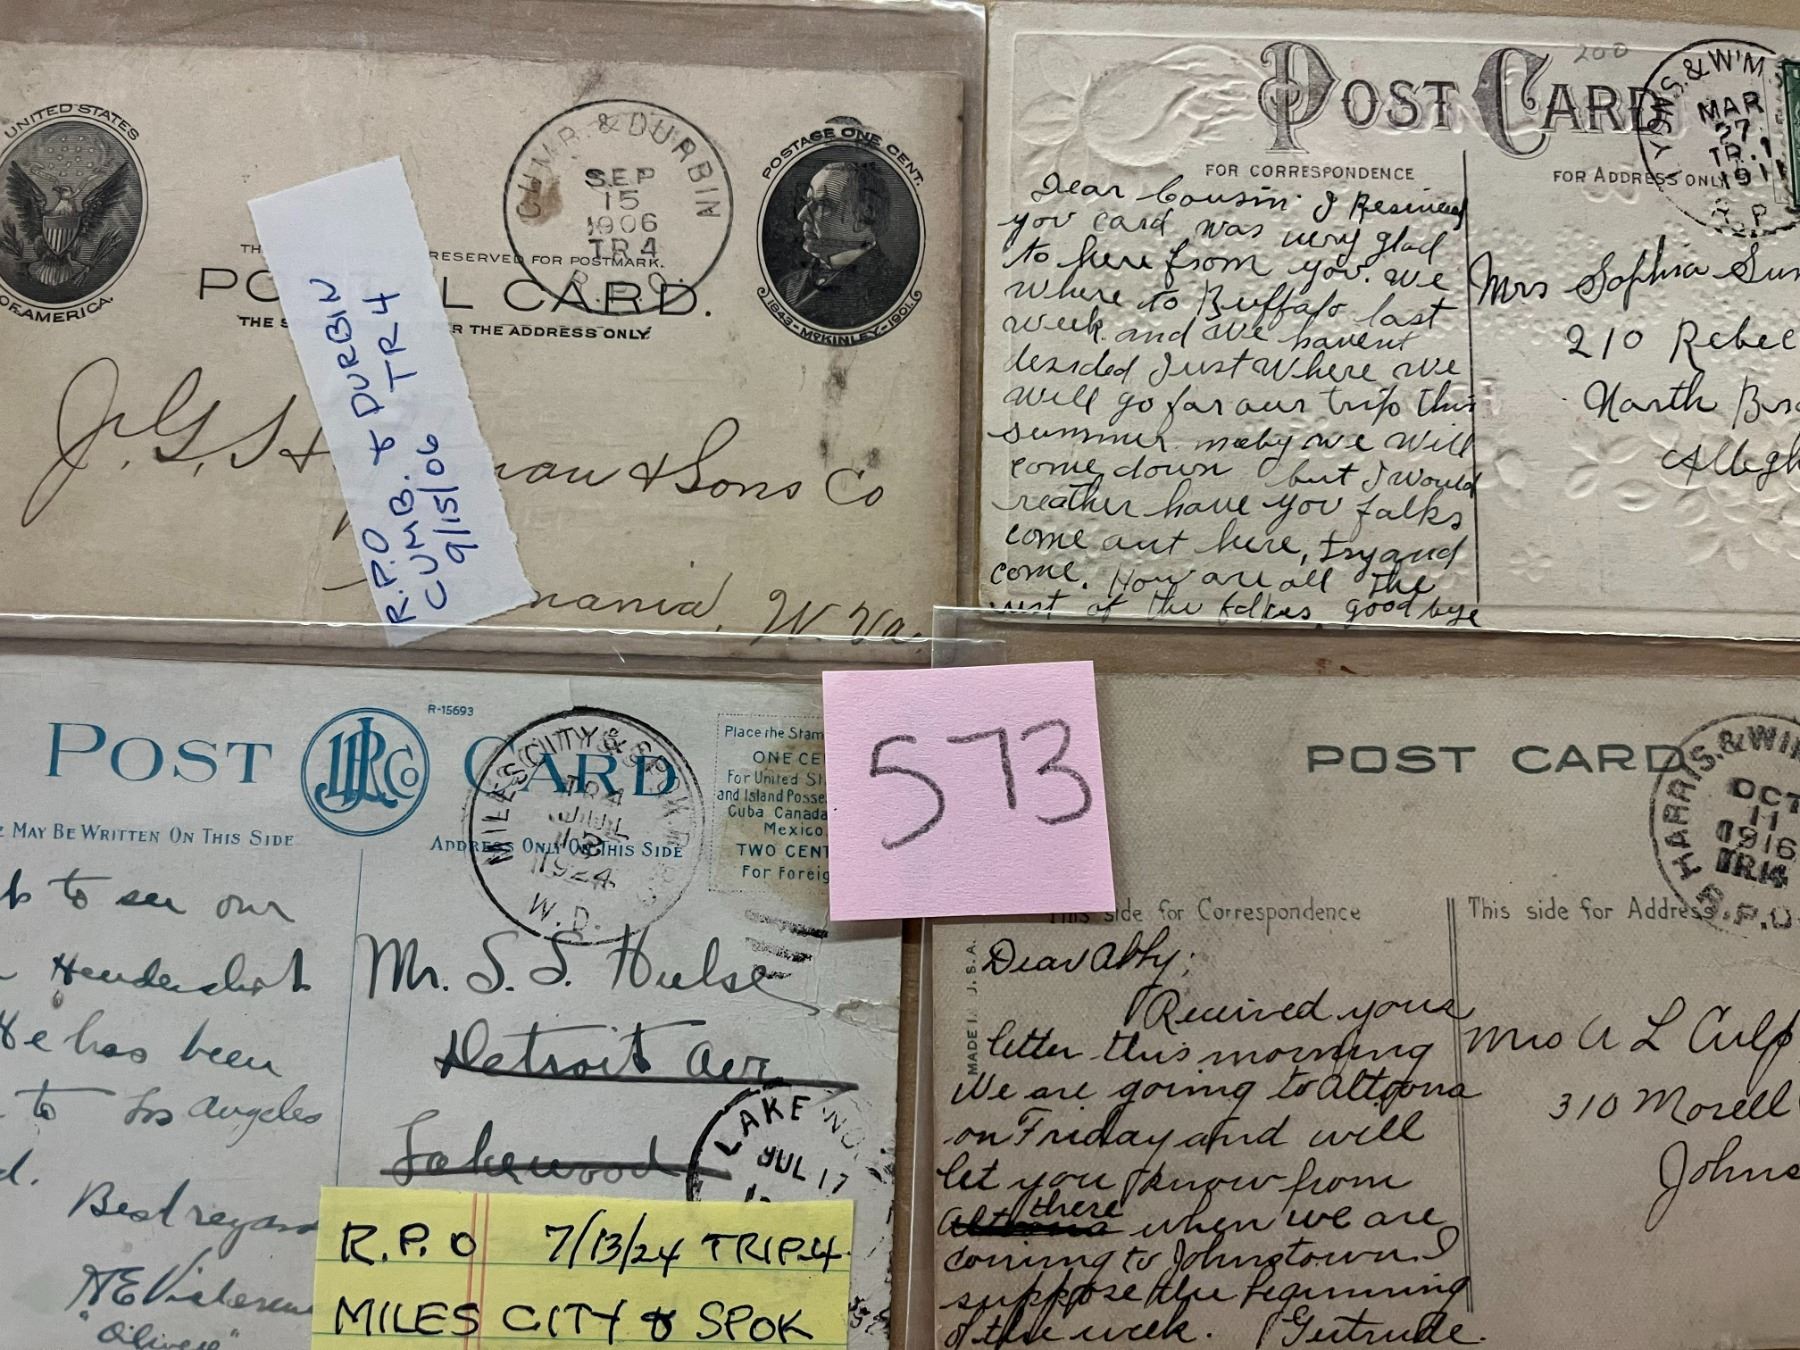 UNITED STATES
OF AMERICA.
CUMB. & DURBIN
SEP
15
1906
TR 4
R.P.O.
POSTAGE ONE CENT.
1843-McKINLEY-1901.
RESERVED FOR POSTMARK.
CARD.
THE ADDRESS ONLY
J. G.
& Sons Co
W. Va.
R.P.O
CUMB. & DURBIN
9/15/06 TR 4
200
POST CARD
& W'M
MAR
27
TR. 1
1911
FOR CORRESPONDENCE
FOR ADDRESS ONLY
Dear Cousin I Resived
you card was very glad
to here from you. We
where to Buffalo last
week and we havent
desided Just Where we
will go for our trip this
summer meby we will
come down but I would
reather have you falks
come out here, try and
come. How are all the
rest of the folkes good bye
Mrs Sophia
210
North
R-15693
POST CARD
MAY BE WRITTEN ON THIS SIDE
ADDRESS ONLY ON THIS SIDE
MILES CITY & SPOK
TR 4
JUL
13
1924
W.D.
Place the Stam
ONE CE
For United St
and Island Posse
Cuba Canada
Mexico
TWO CENT
For Foreig
to see our
He has been
to Los Angeles
Best regards
Mr. S. S. Hulse
Detroit Ave
Lakewood
LAKEWOO
JUL 17
R.P.O 7/13/24 TRIP.4
MILES CITY & SPOK
573
POST CARD
HARRIS. & WIN
OCT
11
1916
TR 14
R.P.O.
This side for Correspondence
This side for Address
MADE I. U.S.A.
Dear Abby;
Received your
letter this morning
We are going to Altoona
on Friday and will
let you know from
there
Altoona when we are
coming to Johnstown. I
suppose the beginning
of the week. Gertrude.
Mrs A L Culp
310 Morell
Johns